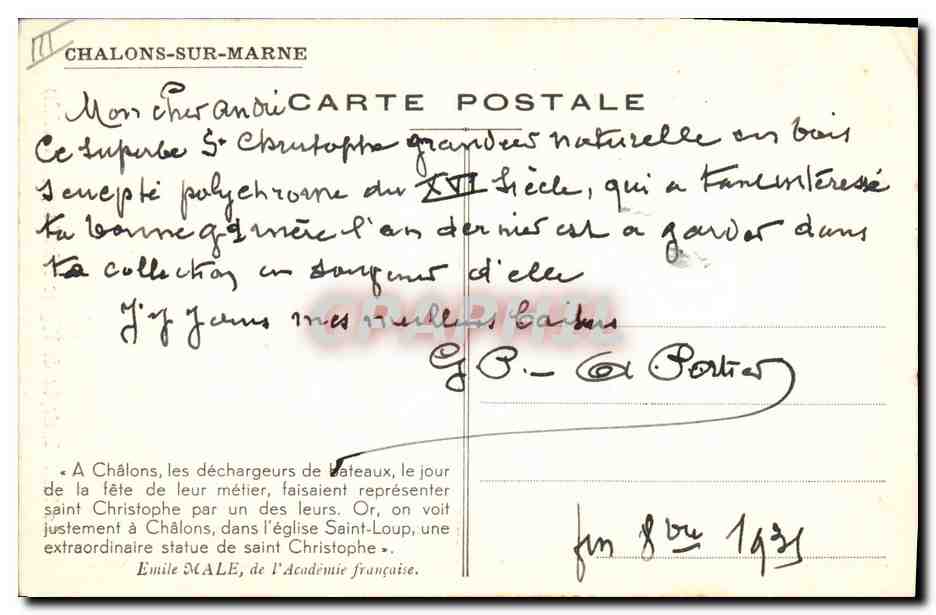 III
CHALONS-SUR-MARNE
CARTE POSTALE
Mon cher andré
Ce superbe St Christophe grandeur naturelle en bois
sculpté polychrome du XVIe Siècle, qui a tant intéressé
ta bonne gd mère l'an dernier est a garder dans
ta collection en souvenir d'elle
J'y joins mes meilleurs baisers
GP. - A Portier
« A Châlons, les déchargeurs de bateaux, le jour
de la fête de leur métier, faisaient représenter
saint Christophe par un des leurs. Or, on voit
justement à Châlons, dans l'église Saint-Loup, une
extraordinaire statue de saint Christophe ».
Emile MALE, de l'Académie française.
fin 8bre 1935